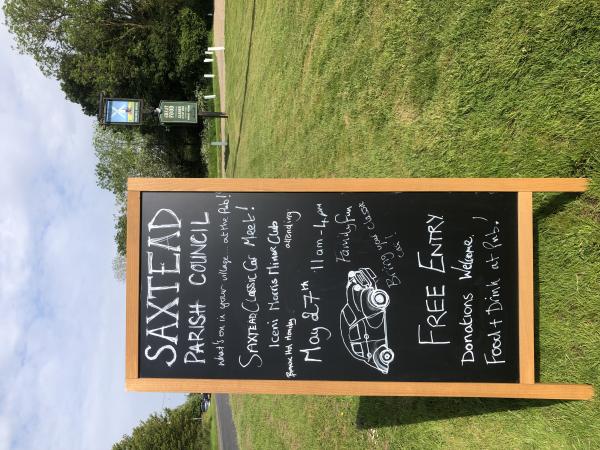 SAXTEAD
PARISH COUNCIL
What's on in your village... at the Pub!
SAXTEAD CLASSIC CAR MEET!
Iceni Morris Minor Club
attending
Bank Hol Monday
May 27th 11am - 4pm
Family Fun
Bring your classic
car!
FREE ENTRY
Donations Welcome.
Food + Drink at Pub!